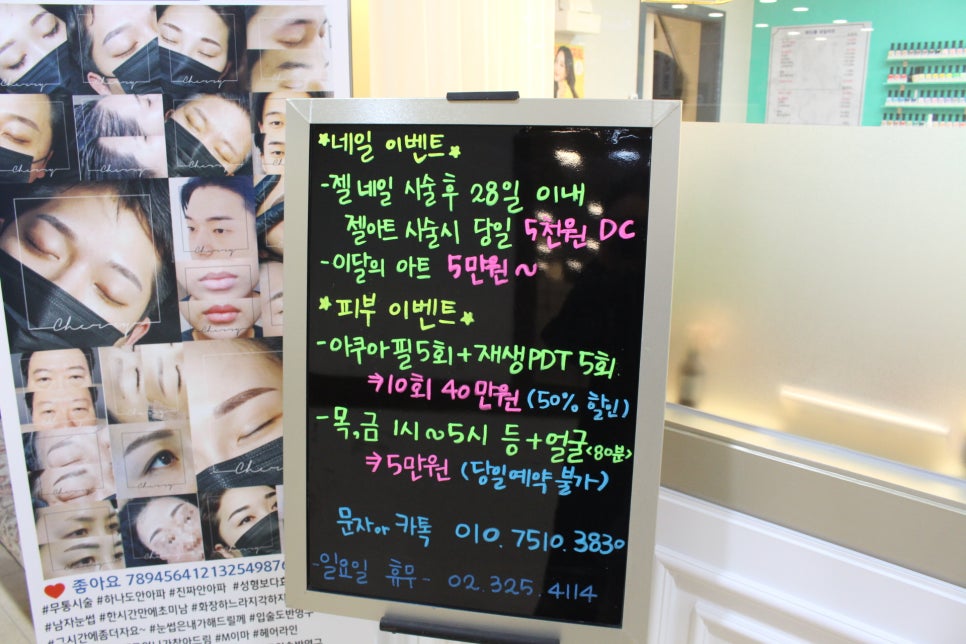 *네일 이벤트*
-젤 네일 시술후 28일 이내
젤아트 시술시 당일 5천원 DC
-이달의 아트 5만원~
*피부 이벤트*
-아쿠아필5회+재생PDT 5회.
→10회 40만원 (50% 할인)
-목,금 1시~5시 등+얼굴<80분>
→5만원 (당일예약불가)
문자or카톡 010.7510.3830
-일요일 휴무- 02.325.4114
Cherry
Cherry
Cherry
Cherry
Cherry
Cherry
좋아요 789456412132549876
#무통시술 #하나도안아파 #진짜안아파 #성형보다효
#남자눈썹 #한시간만에초미남 #화장하느라지각하지
#그시간에좀더자요~ #눈썹은내가해드릴께 #입술도반영구
#M이마 #헤어라인